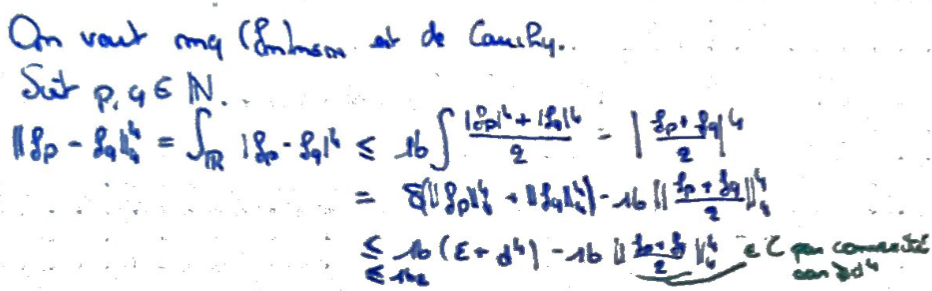 On veut mq (fn)n∈N est de Cauchy.
Soit p, q ∈ N.
||fp - fq||₄⁴ = ∫_R |fp - fq|⁴ ≤ 16 ∫ (|fp|⁴ + |fq|⁴)/2 - |(fp + fq)/2|⁴
= 8(||fp||₄⁴ + ||fq||₄⁴) - 16 ||(fp + fq)/2||₄⁴
≤ 16 (ε + d⁴) - 16 ||(fp + fq)/2||₄⁴ ∈ C par convexité
≤ 16ε donc ≥ d⁴